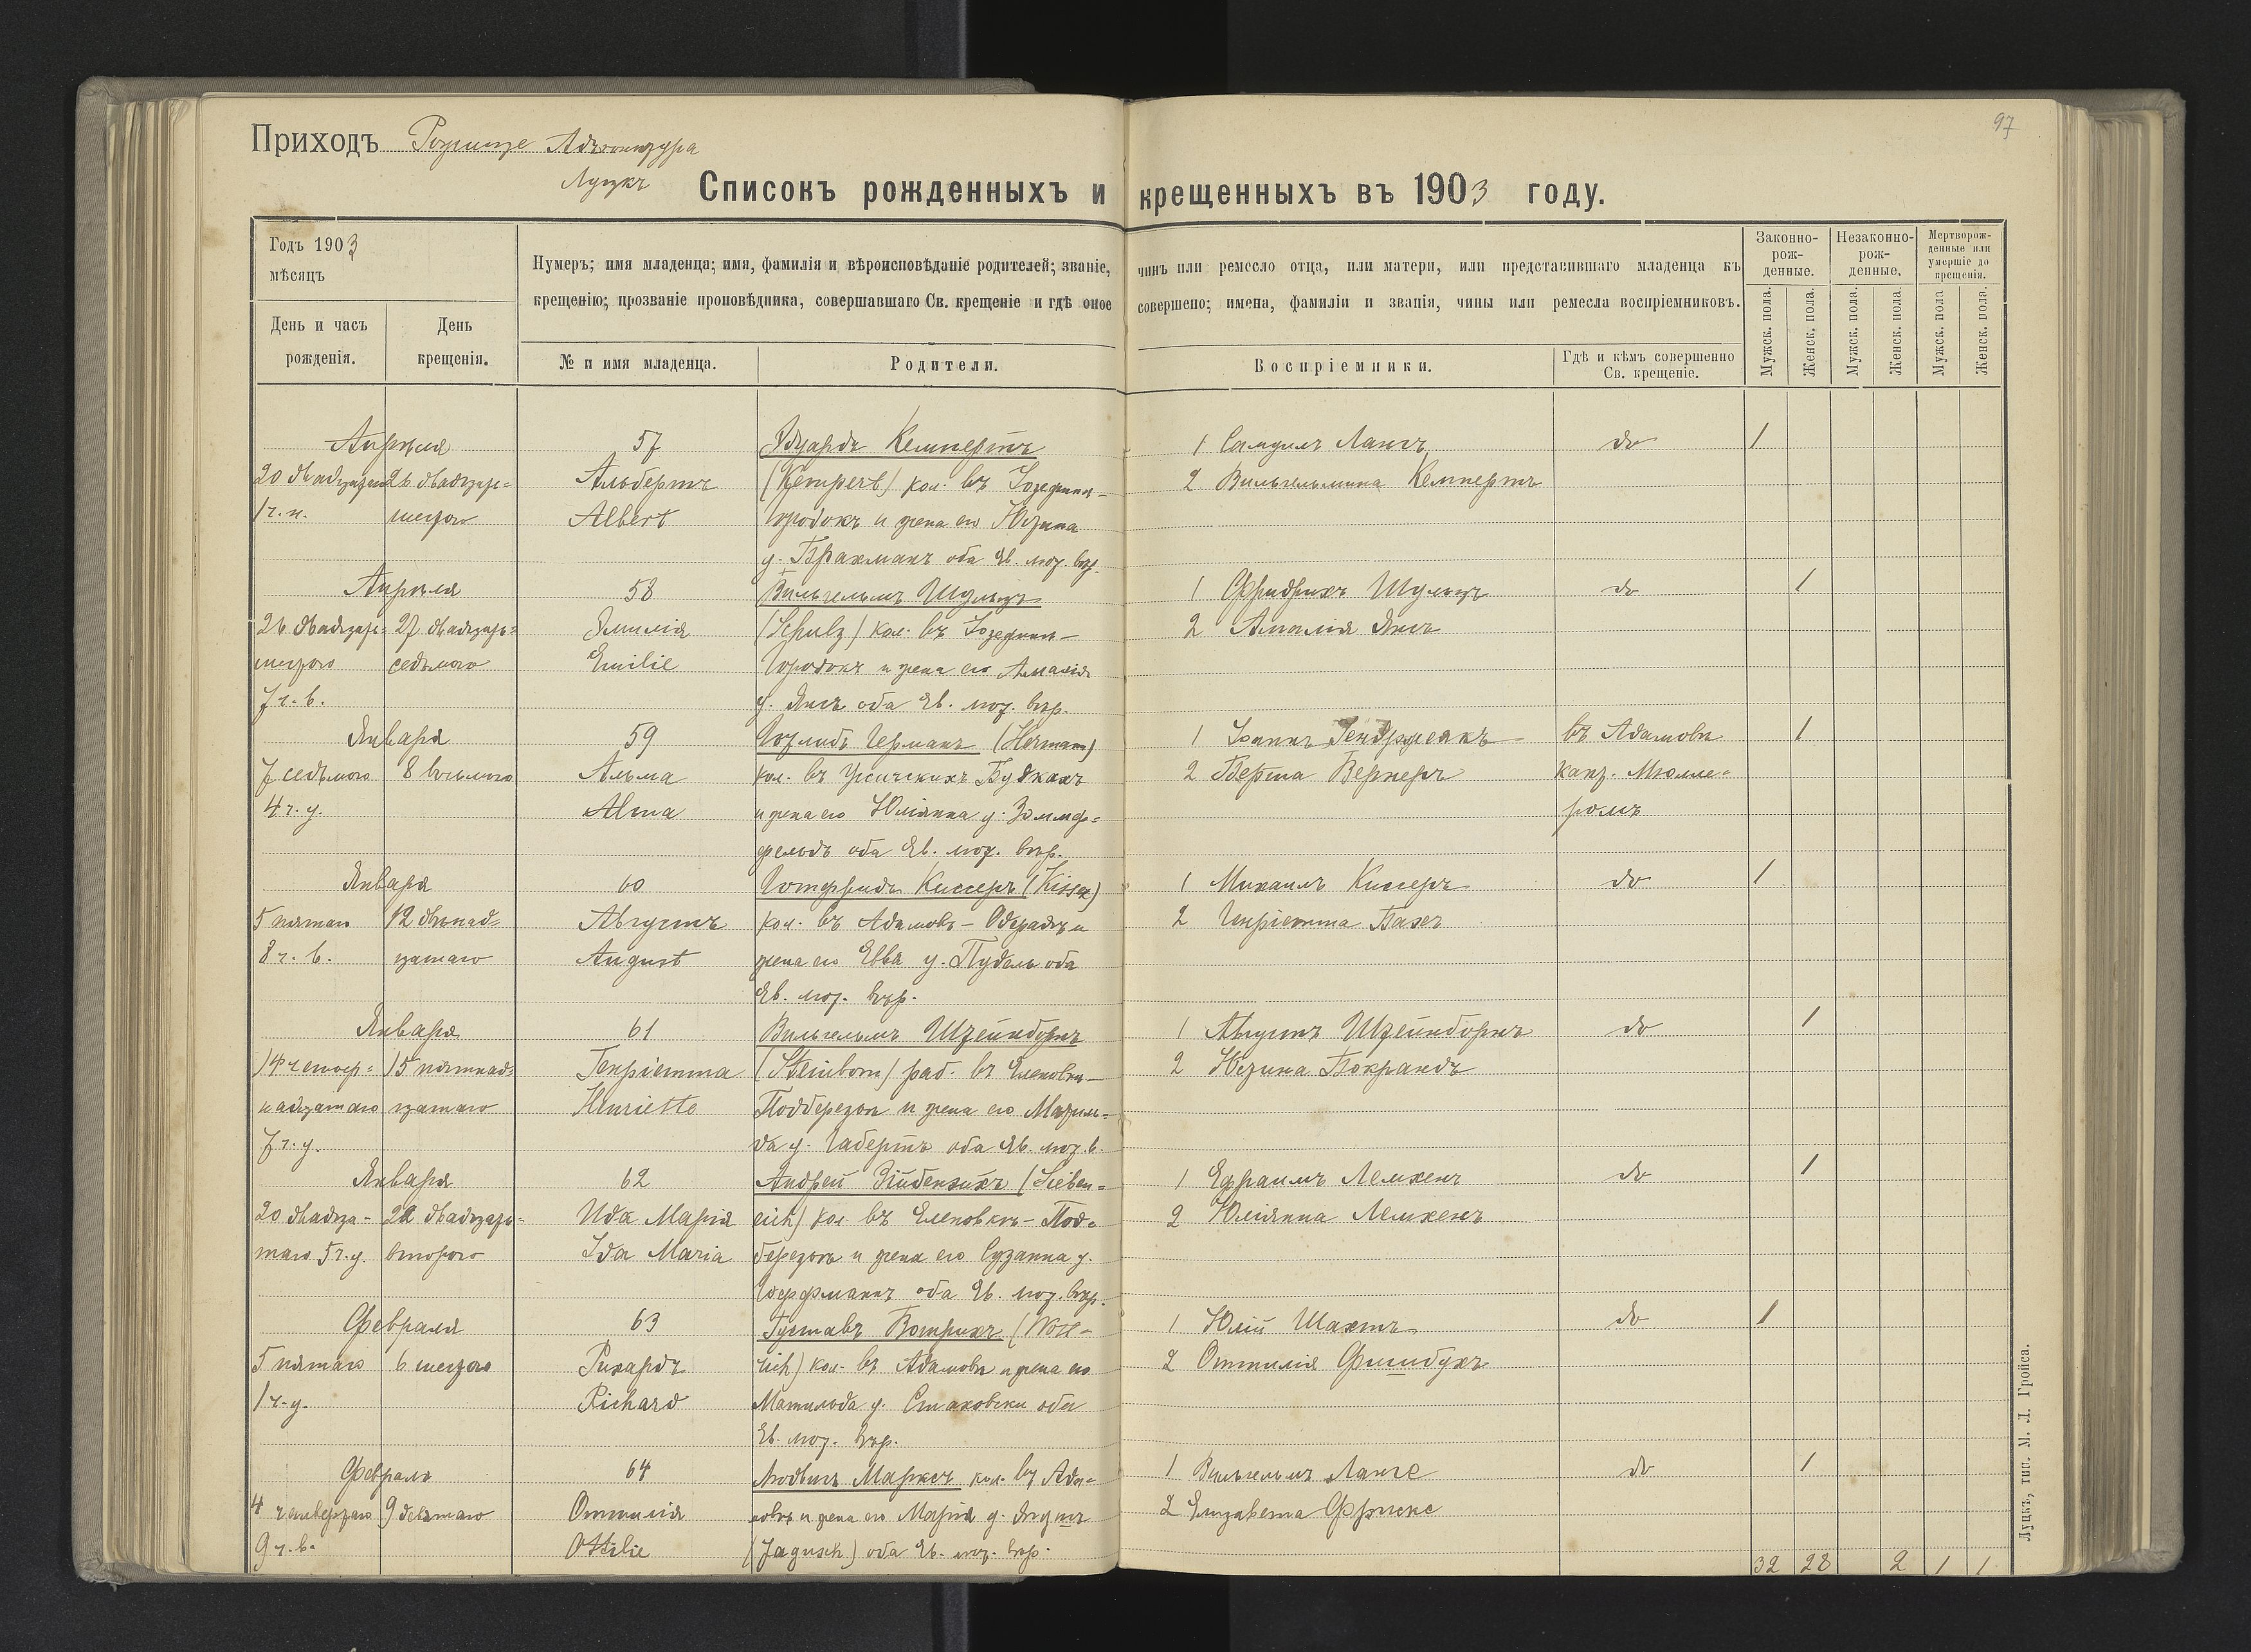 97
Приходъ Рожище Адъюнктура
Луцкъ
Списокъ рожденныхъ и крещенныхъ въ 1903 году.
Годъ 1903
мѣсяцъ
День и часъ рожденія.
День крещенія.
Нумеръ; имя младенца; имя, фамилія и вѣроисповѣданіе родителей; званіе, чинъ или ремесло отца, или матери, или представившаго младенца къ
крещенію; прозваніе проповѣдника, совершавшаго Св. крещеніе и гдѣ оное совершено; имена, фамиліи и званія, чины или ремесла воспріемниковъ.
№ и имя младенца.
Родители.
Воспріемники.
Гдѣ и кѣмъ совершенно Св. крещеніе.
Законно-рож-денные.
Незаконно-рож-денные.
Мертворож-денные или умершіе до крещенія.
Мужск. пола.
Женск. пола.
Мужск. пола.
Женск. пола.
Мужск. пола
Женск. пола.
Апрѣля 57 Эдуардъ Кемпертъ 1 Самуилъ Лангъ do 1
26 двадцать= Альбертъ (Kempert) кол. въ Іозефин- 2 Вильгельмина Кемпертъ
1 ч. н. шестого Albert Городокъ и жена его Юзина
у. Брахманъ оба Ев. лют. вѣр.
Апрѣля 58 Вильгельмъ Шульцъ 1 Фридрихъ Шульцъ do 1
26 двадцать= 27 двадцать= Эмилія (Schulz) кол. въ Іозефин- 2 Амалія Янъ
шестого седьмого Emilie Городокъ и жена его Амалія
7 ч. в. у. Янъ оба Ев. лют. вѣр.
Января 59 Готлибъ Германъ (Hermann) 1 Іоганъ въ Адамовѣ 1
7 седьмого 8 восьмого Альма кол. въ Усичскихъ Будкахъ 2 Берта Вернеръ канд. Мюлле=
4 ч. у. Alma и жена его Юліанна у. Зоммер= ромъ
фельдъ оба Ев. лют. вѣр.
Января 60 Готфридъ Киссеръ (Kisser) 1 Михаилъ Киссеръ do 1
5 пятаго 12 двѣнад= Августъ кол. въ Адамовѣ- и 2 Генріетта Бахъ
8 ч. в. цатаго August жена его Евва у. Пудель оба
Ев. лют. вѣр.
Января 61 Вильгельмъ Штейнборнъ 1 Августъ Штейнборнъ do 1
14 четыр= 15 пятнад= Генріетта (Steinborn) раб. въ Еленовкѣ- 2 Юзина Бокрандъ
надцатаго цатаго Henriette Подберезье и жена его Матиль=
7 ч. у. да у. Габертъ оба Ев. лют. в.
Января 62 Андрей Зибенэйхъ (Sieben= 1 Ефраимъ Лемкенъ do 1
20 двадца- 22 двадцать= Ида Марія eich) кол. въ Еленовкѣ- Под= 2 Юліянна Лемкенъ
таго 5 ч. у. второго Ida Maria березье и жена его Сузанна у.
Гоффманъ оба Ев. лют. вѣр.
Февраля 63 Густавъ Вотрихъ (Wott- 1 Юлій Шахтъ do 1
5 пятаго 6 шестого Рихардъ rich) кол. въ Адамовѣ и жена его 2 Оттилія Фишбухъ
1 ч. у. Richard Матильда у. Стаховски оба
Ев. лют. вѣр.
Февраля 64 Людвигъ Марксъ кол. въ Ада= 1 Вильгельмъ Ланге do 1
4 четвертаго 9 девятаго Оттилія мовкѣ и жена его Марія у. Ягушъ 2 Елизавета Фриске
9 ч. в. Ottilie (Jagusch) оба Ев. лют. вѣр.
32 28 2 1 1
Луцкъ, тип. М. Л. Гройса.